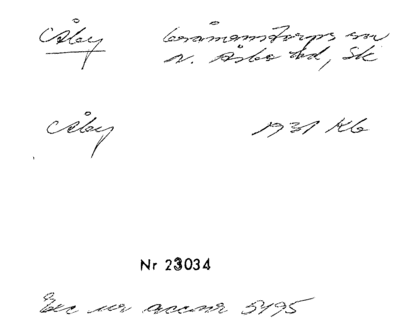 Åby Gråmanstorps sn
N. Åsbo hd, Sk
Åby 1931 Kb
Nr 23034
Exc ur accnr 5495